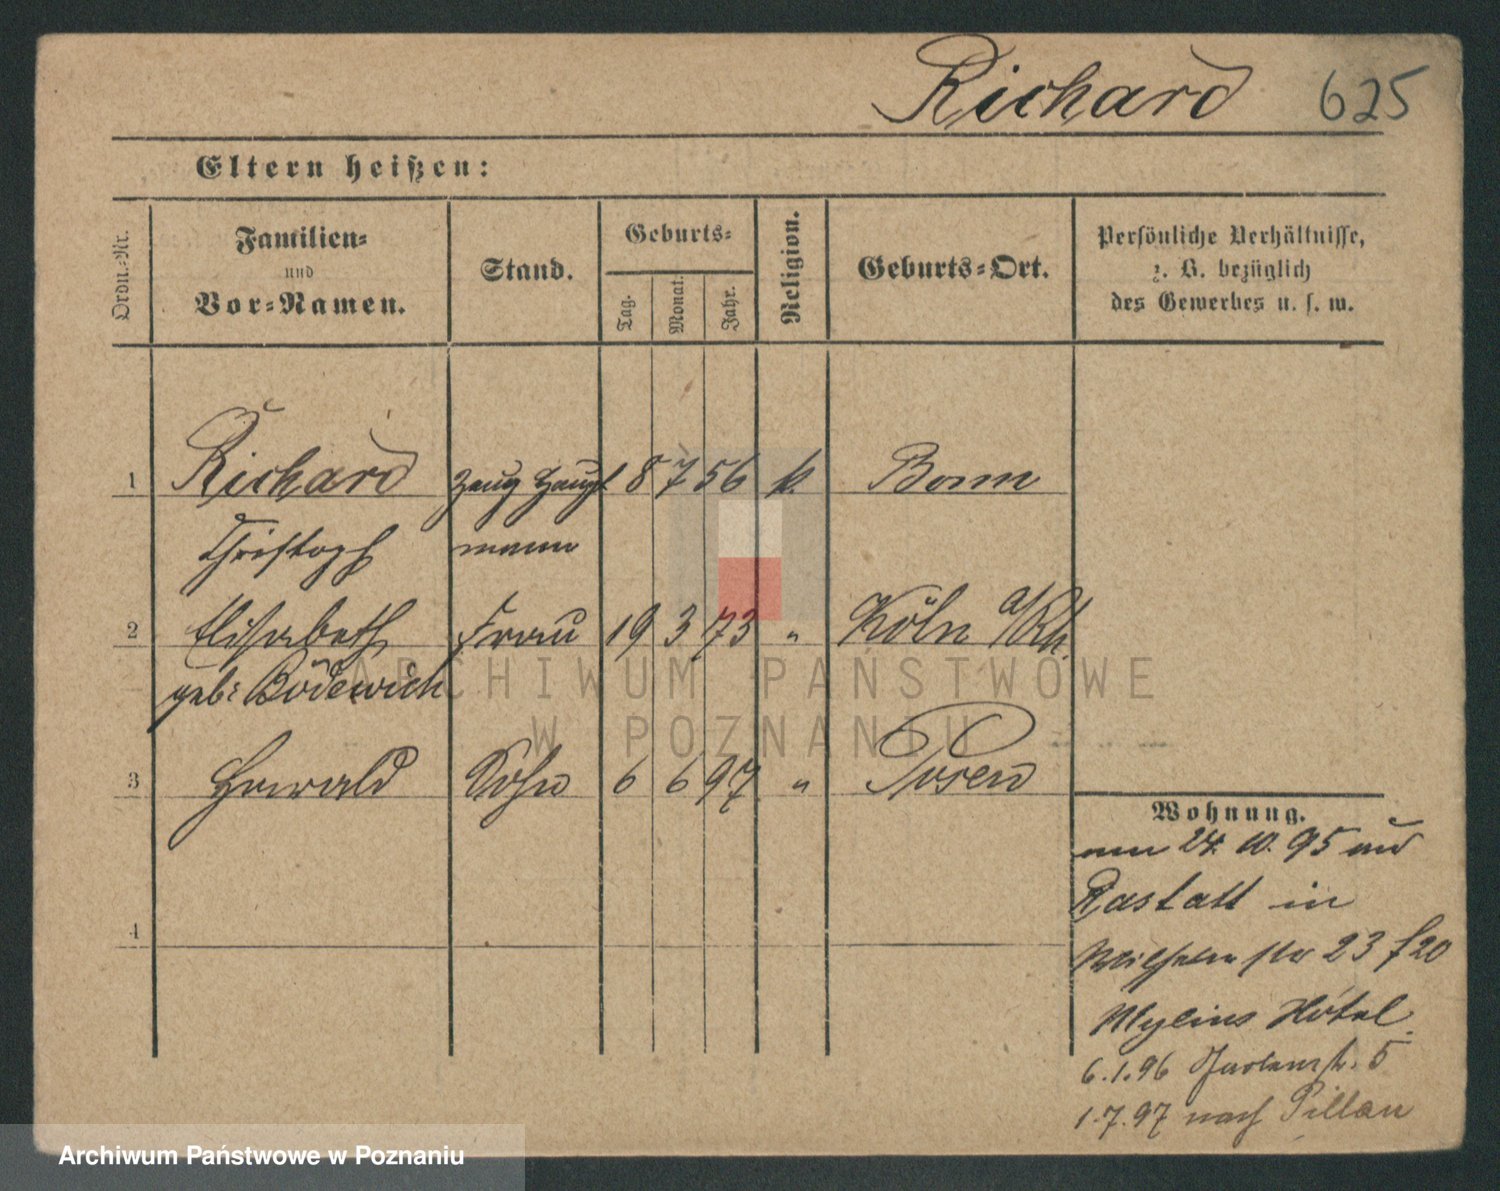 Richard 625
Eltern heißen:
Ordn.-Nr.
Familien-
und
Vor-Namen.
Stand.
Geburts-
Tag.
Monat.
Jahr.
Religion.
Geburts-Ort.
Persönliche Verhältnisse,
z. B. bezüglich
des Gewerbes u. s. w.
1 Richard Zeug Haupt 8 7 56 k. Bonn
Christoph mann
2 Elisabeth Frau 19 3 73 " Köln a/Rh.
geb: Bödewich
3 Sohn 6 6 97 " Posen
4
Wohnung.
am 24. 10. 95 aus
Rastatt in
Wilhelm str 23
Mylius Hôtel.
6.1.96 Gartenstr. 5
1.7.97 nach Pillau
ARCHIWUM PAŃSTWOWE
W POZNANIU
Archiwum Państwowe w Poznaniu